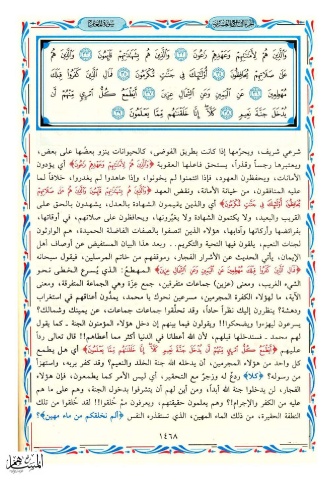 وَالَّذِينَ هُمْ لِأَمَانَاتِهِمْ وَعَهْدِهِمْ رَاعُونَ ﴿٣٢﴾ وَالَّذِينَ هُم بِشَهَادَاتِهِمْ قَائِمُونَ ﴿٣٣﴾ وَالَّذِينَ هُمْ
عَلَىٰ صَلَاتِهِمْ يُحَافِظُونَ ﴿٣٤﴾ أُولَٰئِكَ فِي جَنَّاتٍ مُّكْرَمُونَ ﴿٣٥﴾ فَمَالِ الَّذِينَ كَفَرُوا قِبَلَكَ
مُهْطِعِينَ ﴿٣٦﴾ عَنِ الْيَمِينِ وَعَنِ الشِّمَالِ عِزِينَ ﴿٣٧﴾ أَيَطْمَعُ كُلُّ امْرِئٍ مِّنْهُمْ أَن
يُدْخَلَ جَنَّةَ نَعِيمٍ ﴿٣٨﴾ كَلَّا إِنَّا خَلَقْنَاهُم مِّمَّا يَعْلَمُونَ ﴿٣٩﴾
شرعي شريف، ويحرّمها إذا كانت بطريق الفوضى، كالحيوانات ينزو بعضها على بعض،
ويعتبرها رجساً وقذراً، يستحق فاعلها العقوبة ﴿والَّذِينَ هُمْ لِأَمَانَاتِهِمْ وَعَهْدِهِمْ رَاعُونَ﴾ أي يؤدون
الأمانات، ويحفظون العهود، فإذا ائتمنوا لم يخونوا، وإذا عاهدوا لم يغدروا، خلافاً لما
عليه المنافقون، من خيانة الأمانة، ونقض العهد ﴿والَّذِينَ هُمْ بِشَهَادَاتِهِمْ قَائِمُونَ والَّذِينَ هُمْ عَلَى صَلَاتِهِمْ
يُحَافِظُونَ أُولَئِكَ فِي جَنَّاتٍ مُكْرَمُونَ﴾ أي والذين يقيمون الشهادة بالعدل، يشهدون بالحق على
القريب والبعيد، ولا يكتمون الشهادة ولا يغيّرونها، ويحافظون على صلاتهم، في أوقاتها،
بفرائضها وأركانها وآدابها، هؤلاء الذين اتصفوا بالصفات الفاضلة الحميدة، هم الوارثون
لجنات النعيم، يلقون فيها التحية والتكريم . . وبعد هذا البيان المستفيض عن أوصاف أهل
الإيمان، يأتي الحديث عن الأشرار الفجار، وموقفهم من خاتم المرسلين، فيقول سبحانه
﴿فَمَالِ الَّذِينَ كَفَرُوا قِبَلَكَ مُهْطِعِينَ عَنِ الْيَمِينِ وَعَنِ الشِّمَالِ عِزِينَ﴾ المهطع: الذي يُسرع الخطى نحو
الشيء الغريب، ومعنى (عزين) جماعات متفرقين، جمع عِزة وهي الجماعة المتفرقة، ومعنى
الآية، ما لهؤلاء الكفرة المجرمين، مسرعين نحوك يا محمد، يمدُّون أعناقهم في استغراب
ودهشة؟ ينظرون إليك نظراً حاداً، وقد تحلّقوا جماعات جماعات، عن يمينك وشمالك؟
يسرعون ليهزءوا ويضحكوا!! ويقولون فيما بينهم إن دخل هؤلاء المؤمنون الجنة ـ كما يقول
لهم محمد ـ فسندخلها قبلهم، لأن الله أعطانا في الدنيا أكثر مما أعطاهم!! قال تعالى رداً
عليهم ﴿أَيَطْمَعُ كُلُّ امْرِئٍ مِنْهُمْ أَنْ يُدْخَلَ جَنَّةَ نَعِيمٍ كَلَّا إِنَّا خَلَقْنَاهُمْ مِمَّا يَعْلَمُونَ﴾ أي هل يطمع
كل واحد من هؤلاء المجرمين، أن يدخله الله جنة الخلد والنعيم؟ وقد كفر بربه، واستهزأ
من رسوله؟ ﴿كلا﴾ ردعٌ له وزجرٌ مع التحقير، أي ليس الأمر كما يطمعون، فإن هؤلاء
الفجار، لن يدخلوا جنة الله أبداً، ومن أين لهم أن يتشرفوا بدخول الجنة، وهم على ما هم
عليه من الكفر والإجرام؟! وهم يعلمون حقيقتهم، ويعرفون ممّ خُلقوا؟! لقد خُلقوا من تلك
النطفة الحقيرة، من ذلك الماء المهين، الذي تستقذره النفس ﴿ألم نخلقكم من ماء مهين﴾؟
١٤٦٨